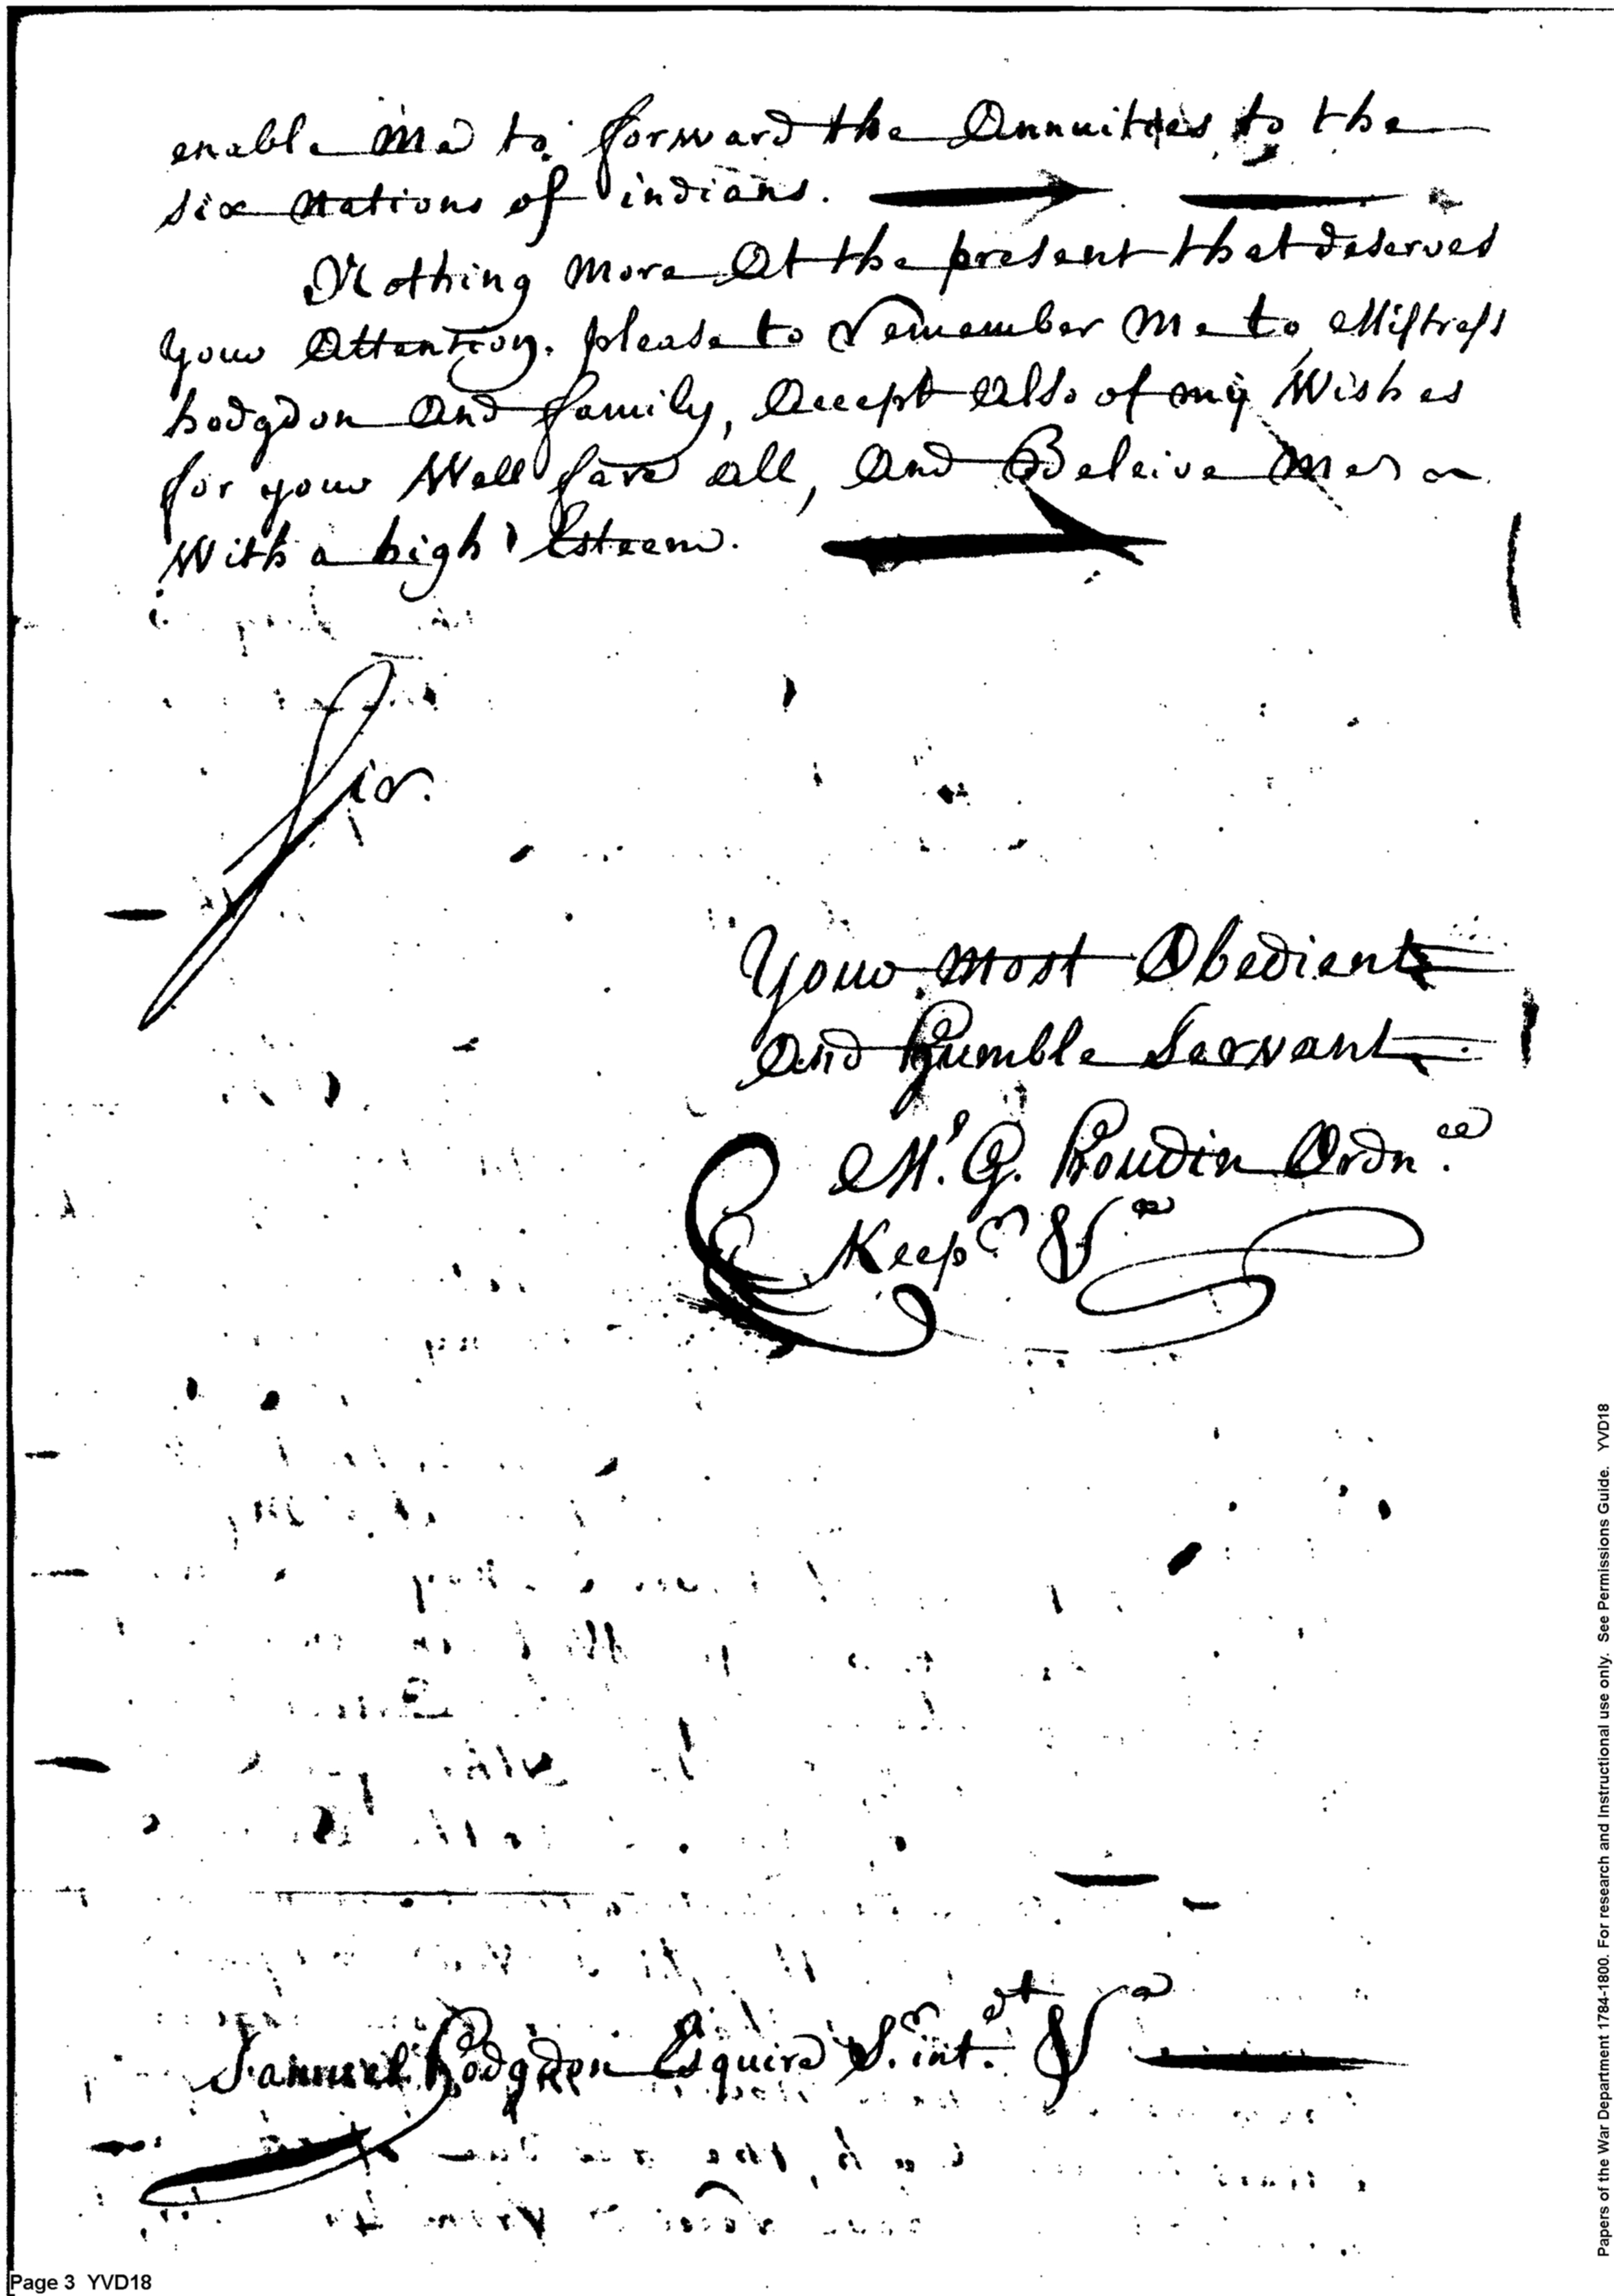 enable Me to forward the Annuities to the
six Nations of indians.
Nothing More At the present that deserves
your Attention. please to Remember Me to Mistress
hodgdon And family, Accept Also of my Wishes
for your Well fare all, And Beleive Me
With a high Esteem.
Sir.
Your Most Obedient
And Humble Servant
M. G. Houdin Ordn.ce
Keep.r &.a
Samuel Hodgdon Esquire S.r int.dt &a
Page 3 YVD18
Papers of the War Department 1784-1800. For research and Instructional use only. See Permissions Guide. YVD18